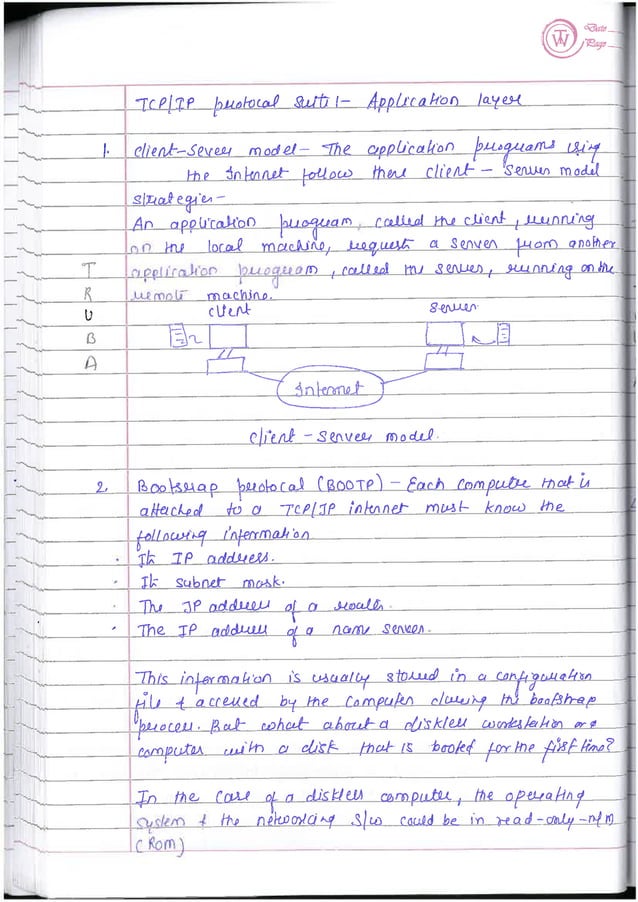 Date
Page
TCP/IP protocal suit :- Application layer
1. client-Sever model - The application programs using
the Internet follow these client - Server model
strategies -
An application program, called the client, running
on the local machine, requests a server from another
application program, called the server, running on the
remote machine.
T
R
U
B
A
client server
Internet
client - Server model.
2. Bootstrap protocal (BOOTP) - Each computer that is
attached to a TCP/IP internet must know the
following information
· Its IP address.
· Its subnet mask.
· The IP address of a router.
· The IP address of a name server.
This information is usually stored in a configuration
file & accessed by the computer during the bootstrap
process. But what about a diskless workstation or a
computer with a disk that is booted for the first time?
In the case of a diskless computer, the operating
system & the networking S/w could be in read-only-m/m
(ROM)